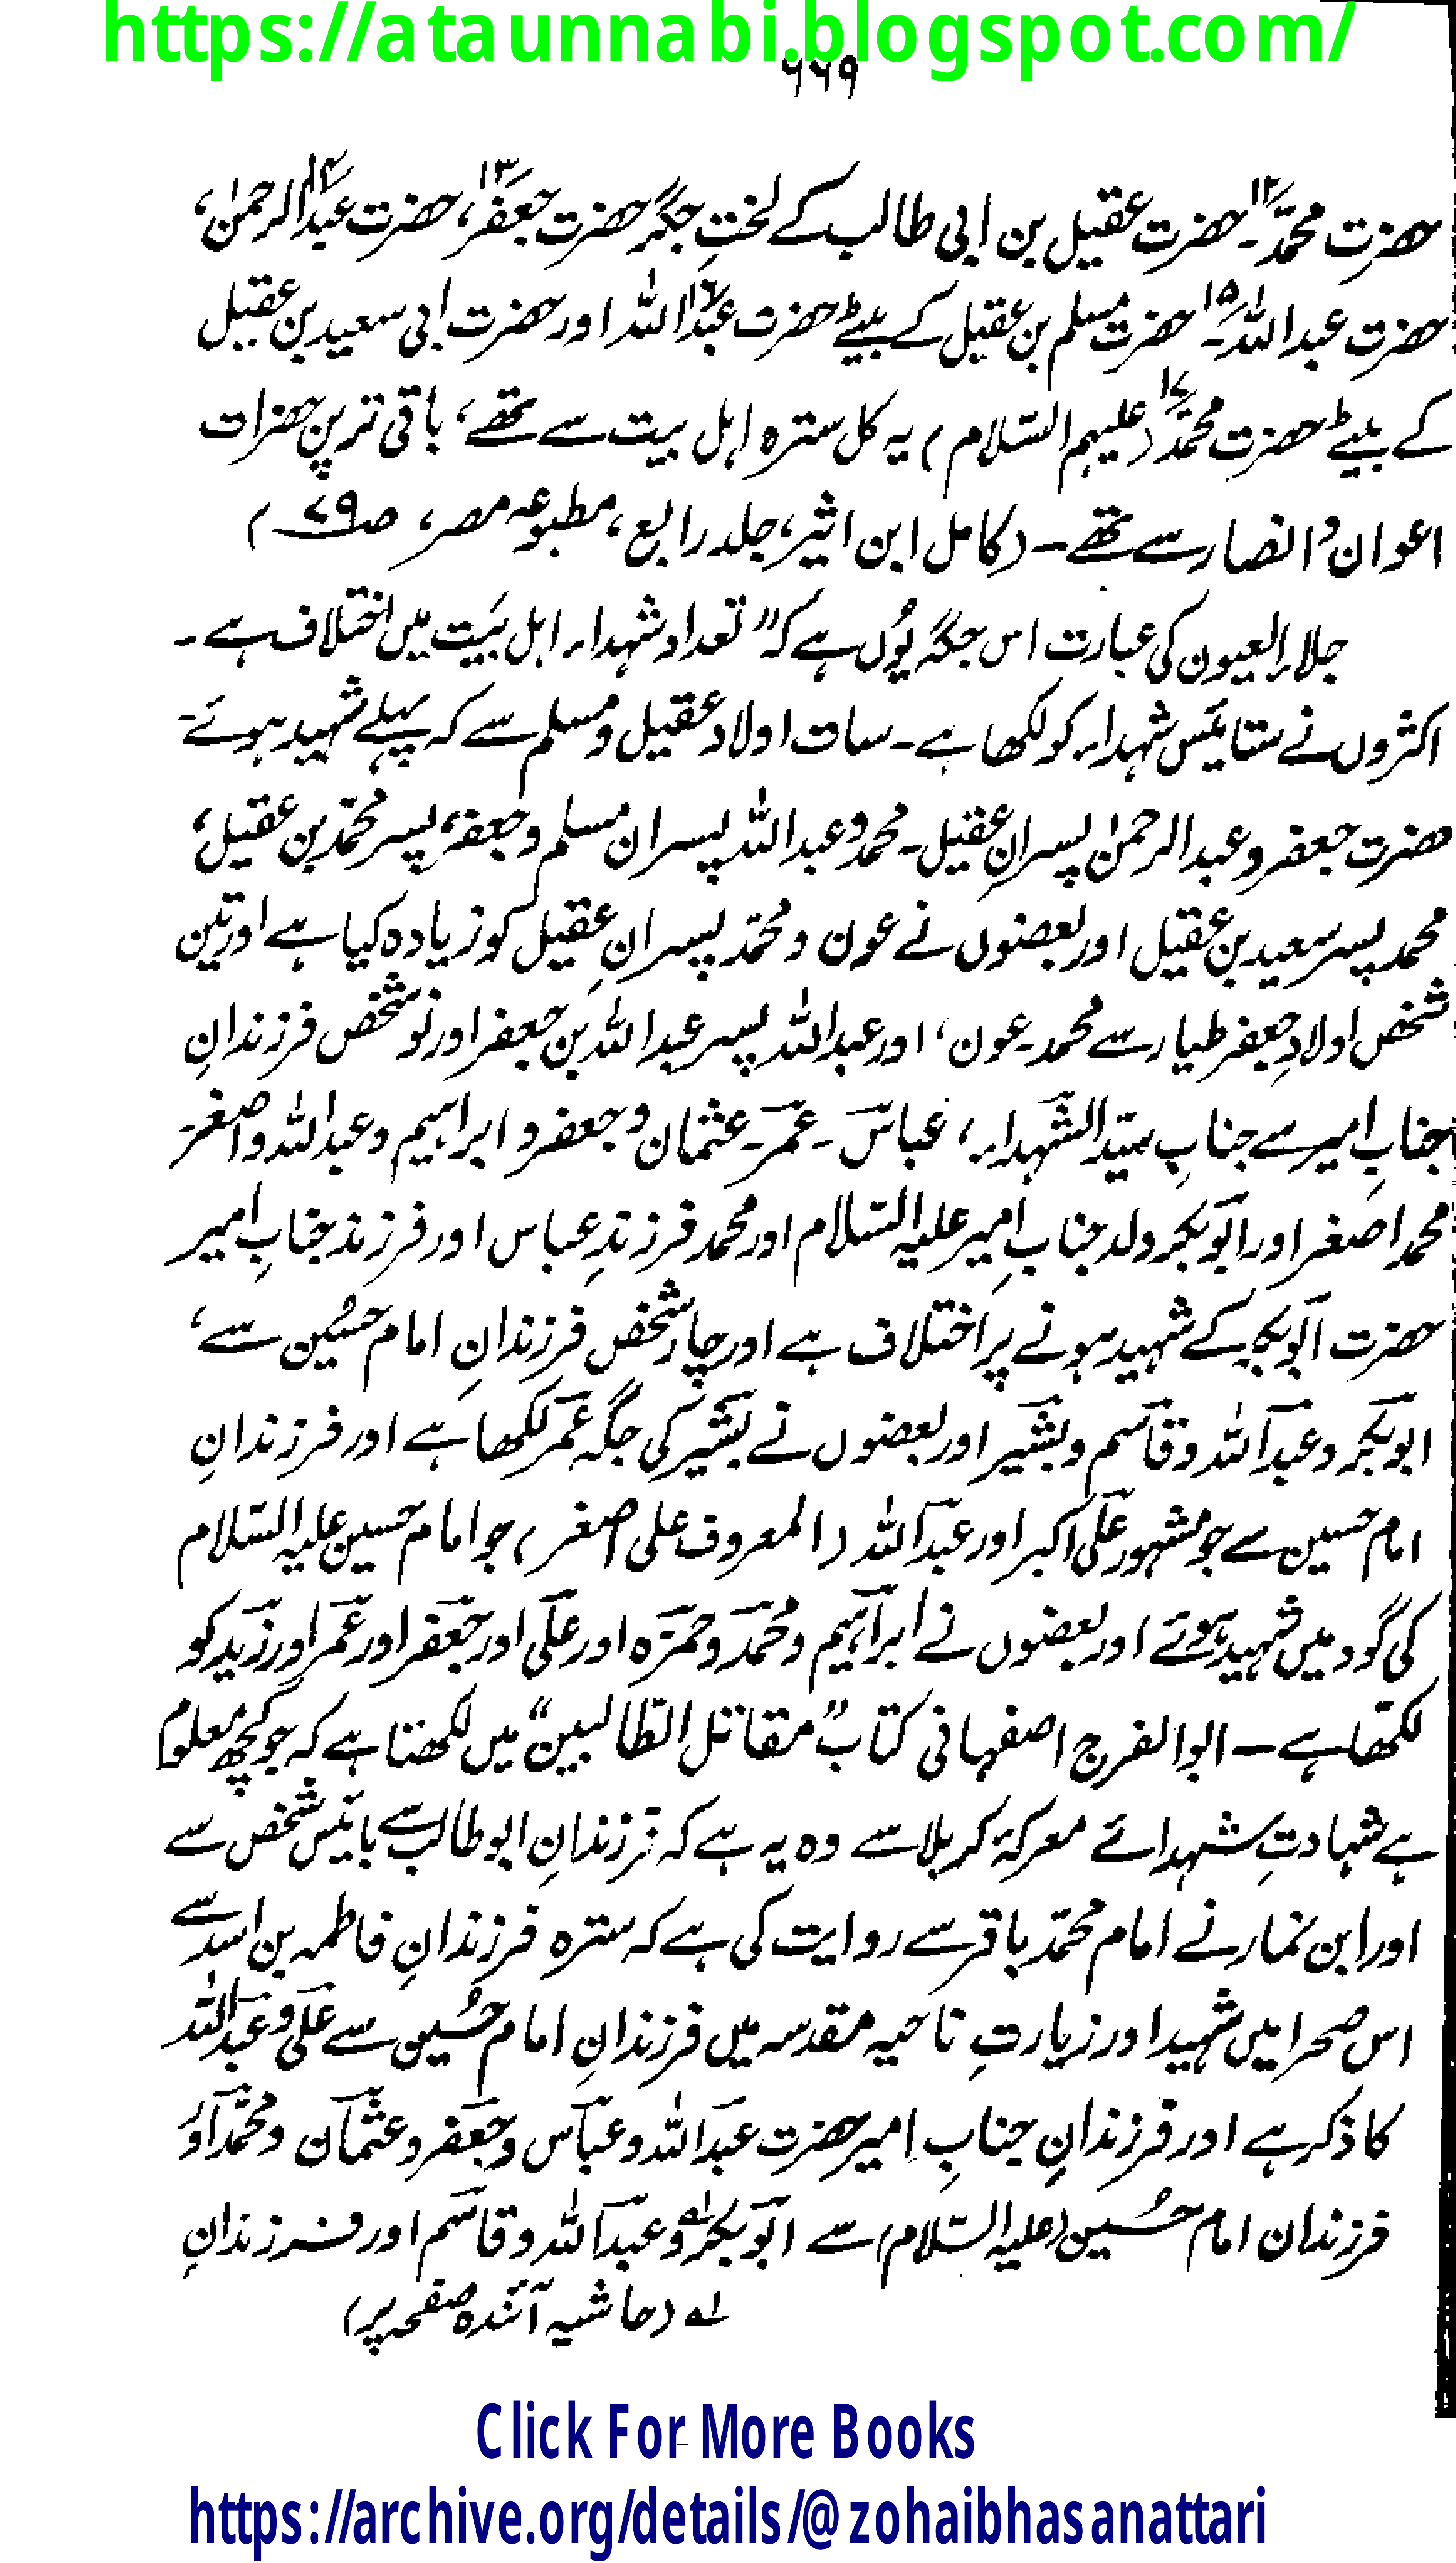 https://ataunnabi.blogspot.com/
۶۶۹
حضرت محمدؑ۱۲۔ حضرت عقیل بن ابی طالب کے لختِ جگر حضرت جعفرؑ۱۳، حضرت عبدالرحمٰنؑ۱۴،
حضرت عبداللہؑ۱۵۔ حضرت مسلم بن عقیل کے بیٹے حضرت عبداللہ۱۶ اور حضرت ابی سعید بن عقیل
کے بیٹے حضرت محمد۱۷ (علیہم السّلام) یہ کل سترہ اہل بیت سے تھے، باقی ترپن حضرات
اعوان و انصار سے تھے۔ (کامل ابن اثیر، جلد رابع، مطبوعہ مصر، ص۷۹)
جلاءالعیون کی عبارت اس جگہ یُوں ہے کہ "تعداد شہداء اہل بَیت میں اختلاف ہے۔
اکثروں نے ستائیس شہداء کو لکھا ہے۔ سات اولاد عقیل و مسلم سے کہ پہلے شہید ہوئے۔
حضرت جعفر و عبدالرحمٰن پسرانِ عقیل۔ محمد و عبداللہ پسران مسلم و جعفر، پسر محمّد بن عقیل،
محمد پسر سعید بن عقیل اور بعضوں نے عون و محمّد پسرانِ عقیل کو زیادہ کیا ہے اور تین
شخص اولادِ جعفر طیار سے محمد۔ عون، اور عبداللہ پسر عبداللہ بن جعفر اور نو شخص فرزندانِ
جنابِ امیر سے جنابِ سیّد الشہداء، عباس۔ عمر۔ عثمان و جعفر و ابراہیم و عبداللہ و اصغر۔
محمد اصغر اور ابوبکر ولد جنابِ امیر علیہ السّلام اور محمد فرزندِ عباس اور فرزند جنابِ امیر
حضرت ابوبکر کے شہید ہونے پر اختلاف ہے اور چار شخص فرزندانِ امام حسُین سے،
ابوبکر و عبداللہ و قاسم و بشیر اور بعضوں نے بشیر کی جگہ عمر لکھا ہے اور فرزندانِ
امام حسین سے جو مشہور علی اکبر اور عبداللہ (المعروف علی اصغر) جو امام حسین علیہ السّلام
کی گود میں شہید ہوئے اور بعضوں نے ابراہیم و محمد و حمزہ اور علی اور جعفر اور عمر اور زید کو
لکھّا ہے۔ ابوالفرج اصفہانی کتاب "مقاتل الطّالبین" میں لکھتا ہے کہ جو کچھ معلوم
ہے شہادتِ شہدائے معرکۂ کربلا سے وہ یہ ہے کہ فرزندانِ ابوطالب سے بائیس شخص سے
اور ابن نمار نے امام محمّد باقر سے روایت کی ہے کہ سترہ فرزندانِ فاطمہ بن اسد سے
اس صحرا میں شہید اور زیارتِ ناحیہ مقدسہ میں فرزندانِ امام حسُین سے علی و عبداللہ
کا ذکر ہے اور فرزندانِ جنابِ امیر حضرت عبداللہ و عباس و جعفر و عثمان و محمّد اور
فرزندان امام حسُین (علیہ السّلام) سے ابوبکر لہ و عبداللہ و قاسم اور فرزندانِ
لہ (حاشیہ آئندہ صفحہ پر)
Click For More Books
https://archive.org/details/@zohaibhasanattari